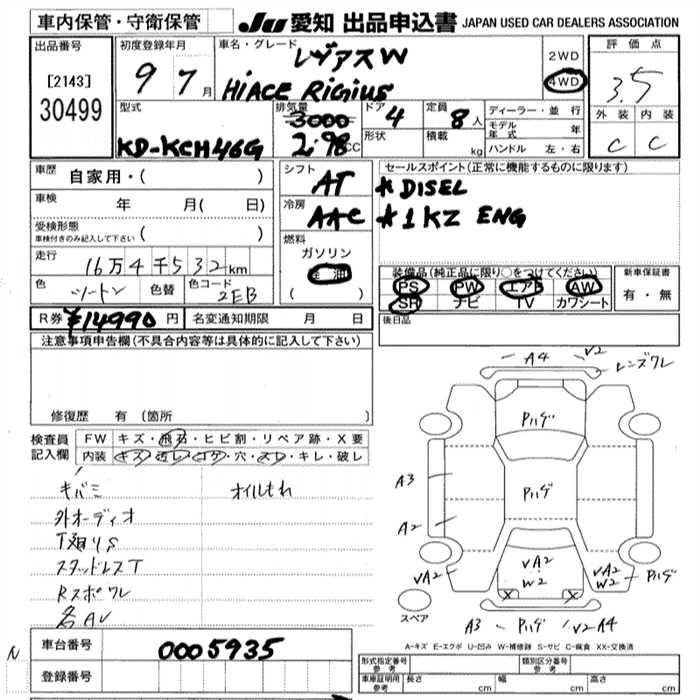 車内保管・守衛保管
JU 愛知 出品申込書 JAPAN USED CAR DEALERS ASSOCIATION
出品番号
[2143]
30499
初度登録年月
9 7月
車名・グレード
レヅアスW
HIACE RIGIUS
2WD
4WD
評価点
3.5
外装 内装
C C
型式
KD-KCH46G
排気量
3000
2.98 CC
ドア
4
形状
定員
8人
積載
kg
ディーラー・並行
モデル年式 年
ハンドル 左・右
車歴 自家用・( )
車検 年 月( 日)
受検形態
車検付きのみ記入して下さい ( )
走行
16万4千532km
色
ツートン
色替
色コード
2EB
シフト
AT
冷房
AAC
燃料
ガソリン
( )
セールスポイント(正常に機能するものに限ります)
*DISEL
*1KZ ENG
装備品(純正品に限り○をつけてください)
PS PW エアB AW
SR ナビ TV カワシート
新車保証書
有・無
後日品
R券 ¥14990円 名変通知期限 月 日
注意事項申告欄(不具合内容等は具体的に記入して下さい)
修復歴 有(箇所 )
検査員記入欄
FW キズ・飛石・ヒビ割・リペア跡・X要
内装 キズ・汚レ・コゲ・穴・スレ・キレ・破レ
キバミ
オイルもれ
外オーディオ
スタッドレスT
Rスポワレ
各AV
A4 V2
レンズワレ
Pハゲ
Pハゲ
A3
A2
VA2
VA2
W2
VA2
W2
Pハゲ
スペア
A3 Pハゲ V2 A4
A-キズ E-エクボ U-凹み W-補修跡 S-サビ C-腐食 XX-交換済
車台番号 0005935
登録番号
形式指定番号
参考
類別区分番号
参考
車庫証明用
参考
長さ cm 幅 cm 高さ cm
N